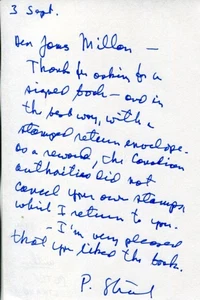 3 Sept.
Dear Jonas Millan —
Thanks for asking for a
signed book — and in
the best way, with a
stamped return envelope.
As a reward, the Canadian
authorities did not
cancel your own stamps,
which I return to you.
— I'm very pleased
that you liked the book.
P.